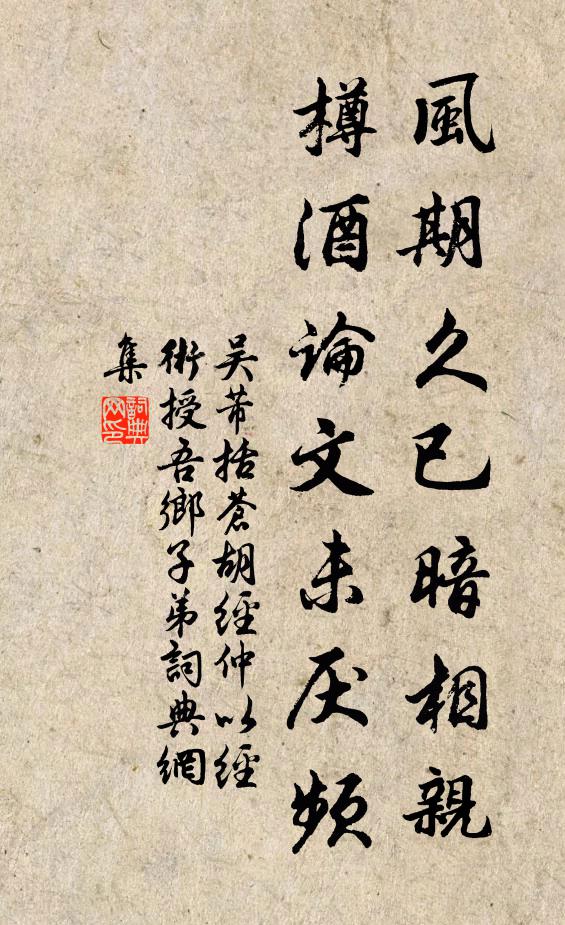 風期久已暗相親
樽酒論文未厌頻
吴芾括蒼胡經仲以經
術授吾鄉子弟詞典網
集
詞典
网印